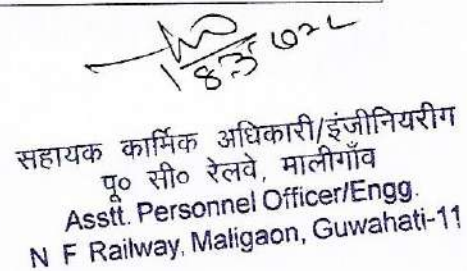 सहायक कार्मिक अधिकारी/इंजीनियरीग
पू० सी० रेलवे, मालीगाँव
Asstt. Personnel Officer/Engg.
N F Railway, Maligaon, Guwahati-11